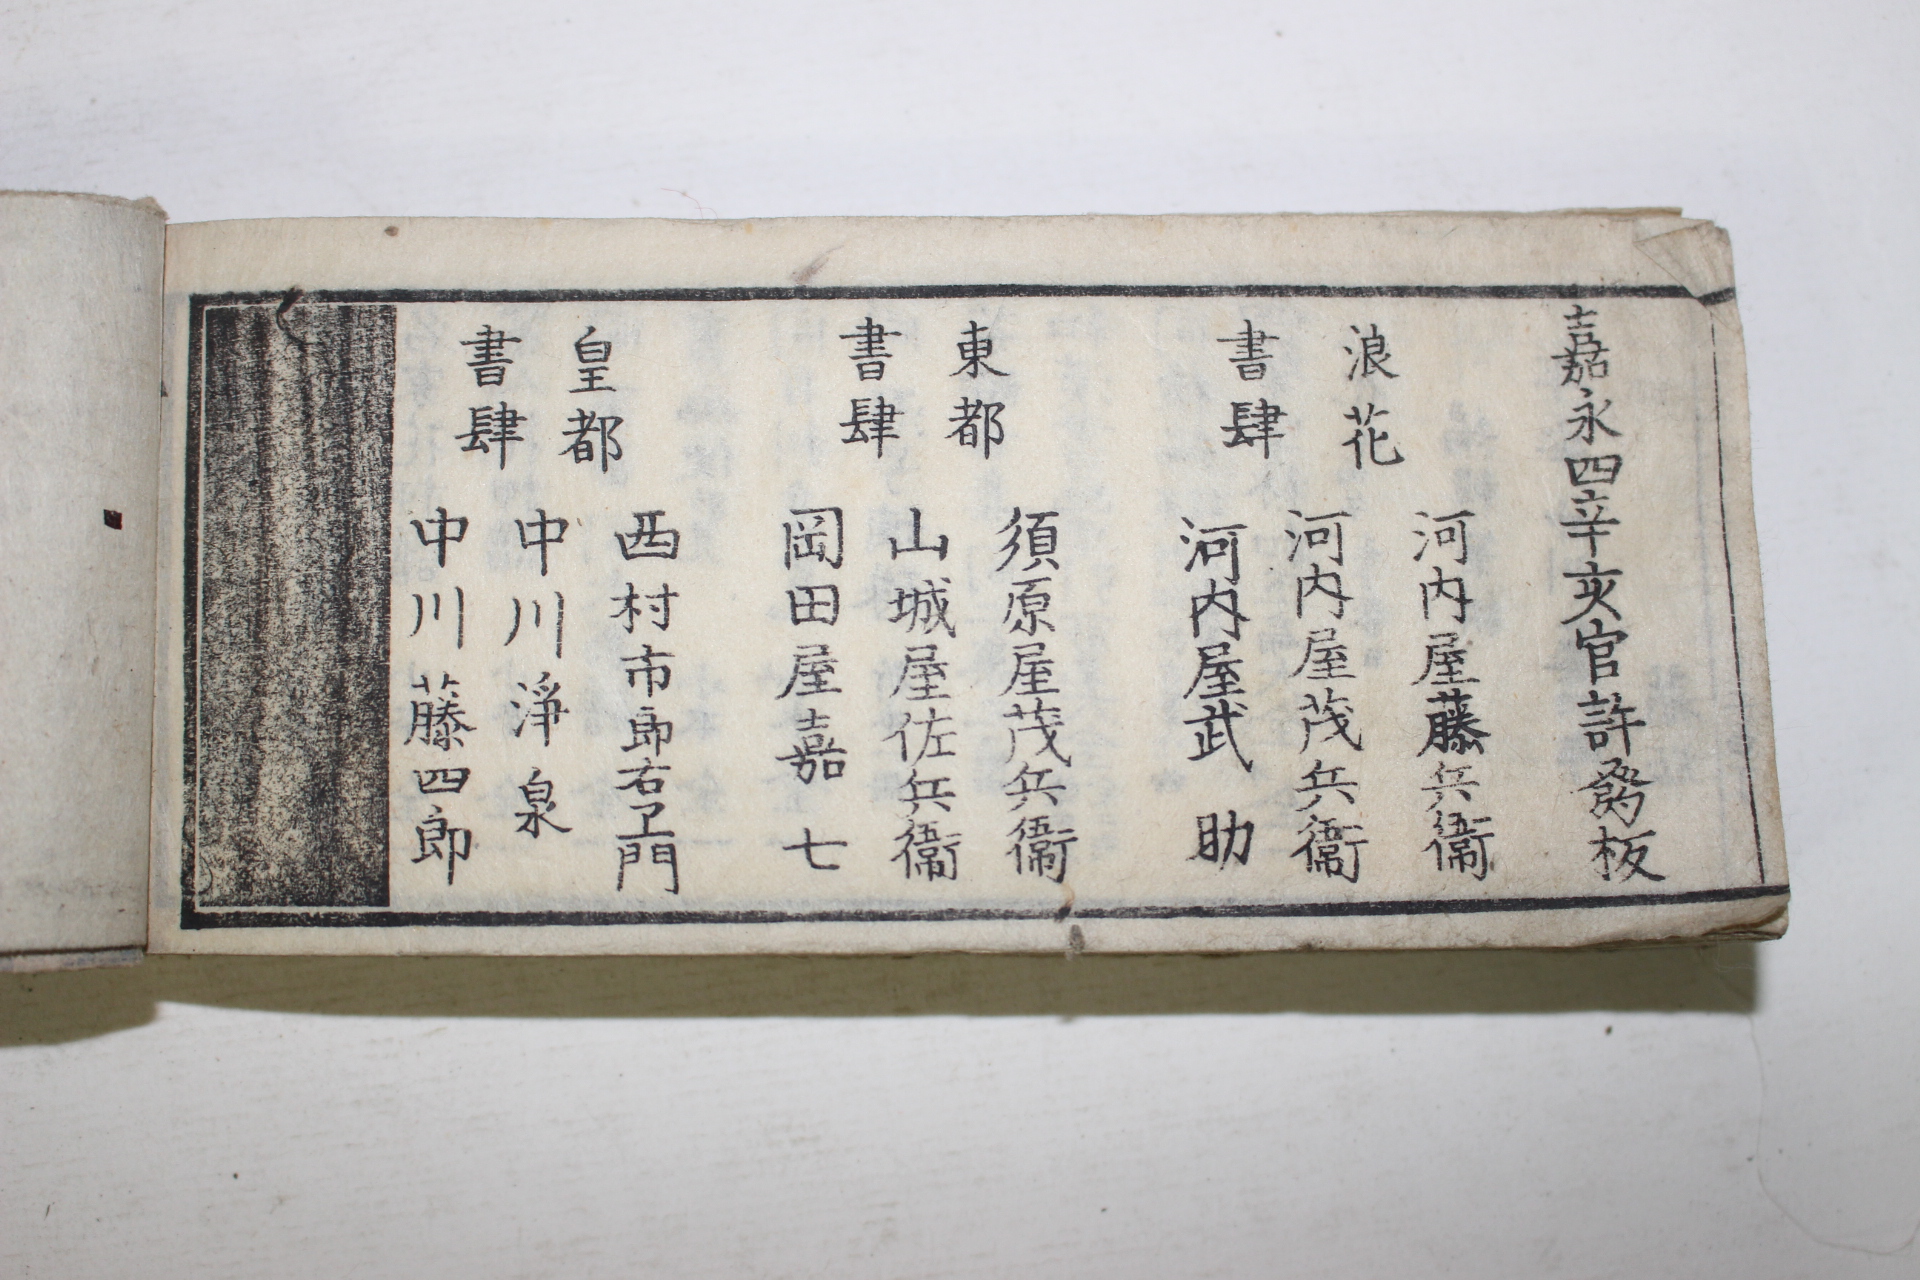 嘉永四辛亥官許發板
浪花
書肆
河内屋藤兵衞
河内屋茂兵衞
河内屋武助
東都
書肆
須原屋茂兵衞
山城屋佐兵衞
岡田屋嘉七
皇都
書肆
西村市郎右卫門
中川淨泉
中川藤四郎